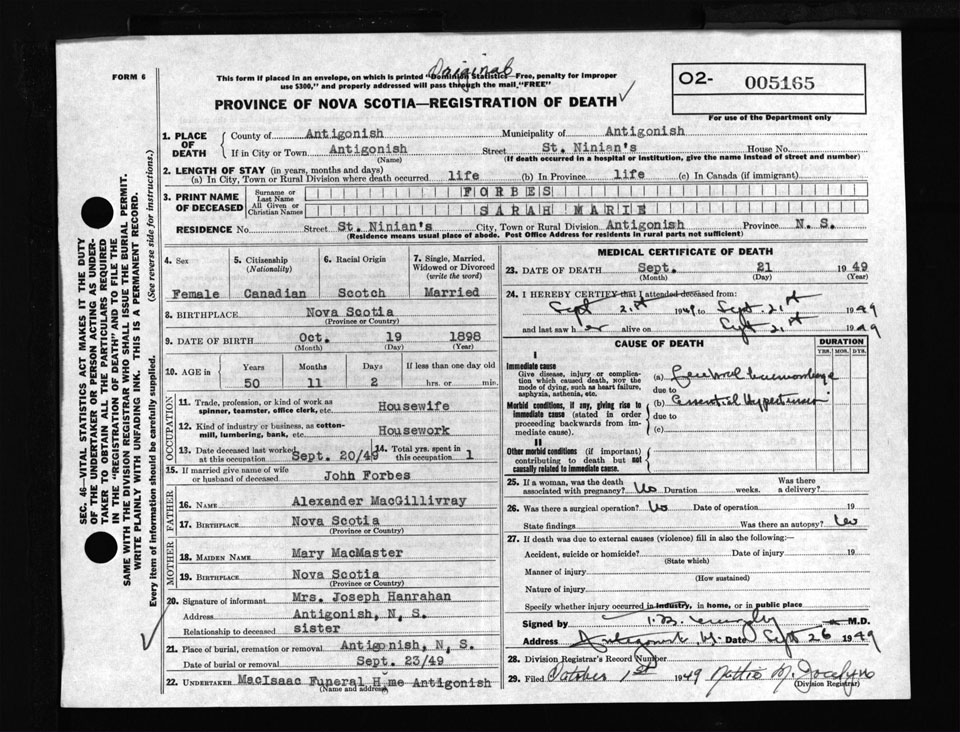 Original
FORM 6
This form if placed in an envelope, on which is printed "Dominion Statistics—Free, penalty for improper
use $300," and properly addressed will pass through the mail, "FREE"
O2- 005165
For use of the Department only
PROVINCE OF NOVA SCOTIA—REGISTRATION OF DEATH
1. PLACE OF DEATH
County of Antigonish Municipality of Antigonish
If in City or Town Antigonish Street St. Ninian's House No.
(Name) (If death occurred in a hospital or institution, give the name instead of street and number)
2. LENGTH OF STAY (in years, months and days)
(a) In City, Town or Rural Division where death occurred life (b) In Province life (c) In Canada (if immigrant)
3. PRINT NAME OF DECEASED
Surname or Last Name FORBES
All Given or Christian Names SARAH MARIE
RESIDENCE No. Street St. Ninian's City, Town or Rural Division Antigonish Province N. S.
(Residence means usual place of abode. Post Office Address for residents in rural parts not sufficient)
4. Sex 5. Citizenship (Nationality) 6. Racial Origin 7. Single, Married, Widowed or Divorced (write the word)
Female Canadian Scotch Married
8. BIRTHPLACE Nova Scotia
(Province or Country)
9. DATE OF BIRTH Oct. 19 1898
(Month) (Day) (Year)
10. AGE in Years Months Days If less than one day old
50 11 2 hrs. or min.
OCCUPATION
11. Trade, profession, or kind of work as spinner, teamster, office clerk, etc. Housewife
12. Kind of industry or business, as cotton-mill, lumbering, bank, etc. Housework
13. Date deceased last worked at this occupation Sept. 20/49 14. Total yrs. spent in this occupation 1
15. If married give name of wife or husband of deceased John Forbes
FATHER
16. NAME Alexander MacGillivray
17. BIRTHPLACE Nova Scotia
(Province or Country)
MOTHER
18. MAIDEN NAME Mary MacMaster
19. BIRTHPLACE Nova Scotia
(Province or Country)
20. Signature of informant Mrs. Joseph Hanrahan
Address Antigonish, N. S.
Relationship to deceased sister
21. Place of burial, cremation or removal Antigonish, N. S.
Date of burial or removal Sept. 23/49
22. UNDERTAKER MacIsaac Funeral Home Antigonish
(Name and address)
MEDICAL CERTIFICATE OF DEATH
23. DATE OF DEATH Sept. 21 1949
(Month) (Day) (Year)
24. I HEREBY CERTIFY that I attended deceased from:
Sept 21st 1949 to Sept. 21st 1949
and last saw her alive on Sept 21st 1949
CAUSE OF DEATH DURATION
YRS. MOS. DYS.
I
Immediate cause
Give disease, injury or complication which caused death, NOT the mode of dying, such as heart failure, asphyxia, asthenia, etc.
(a) Cerebral haemorrhage
due to
Morbid conditions, if any, giving rise to immediate cause (stated in order proceeding backwards from immediate cause).
(b) Essential Hypertension
due to
(c)
II
Other morbid conditions (if important) contributing to death but not causally related to immediate cause.
25. If a woman, was the death associated with pregnancy? No Duration weeks. Was there a delivery?
26. Was there a surgical operation? No Date of operation 19
State findings Was there an autopsy? No
27. If death was due to external causes (violence) fill in also the following:—
Accident, suicide or homicide? Date of injury 19
(State which)
Manner of injury
(How sustained)
Nature of injury
Specify whether injury occurred in industry, in home, or in public place
Signed by M.D.
Address Antigonish Date Sept 26 1949
28. Division Registrar's Record Number
29. Filed October 1st 1949 Nettie M. Jocelyn
(Division Registrar)
SEC. 46—VITAL STATISTICS ACT MAKES IT THE DUTY
OF THE UNDERTAKER OR PERSON ACTING AS UNDER-
TAKER TO OBTAIN ALL THE PARTICULARS REQUIRED
IN THE "REGISTRATION OF DEATH" AND TO FILE THE
SAME WITH THE DIVISION REGISTRAR WHO SHALL ISSUE THE BURIAL PERMIT.
WRITE PLAINLY WITH UNFADING INK. THIS IS A PERMANENT RECORD.
Every item of information should be carefully supplied. (See reverse side for instructions.)